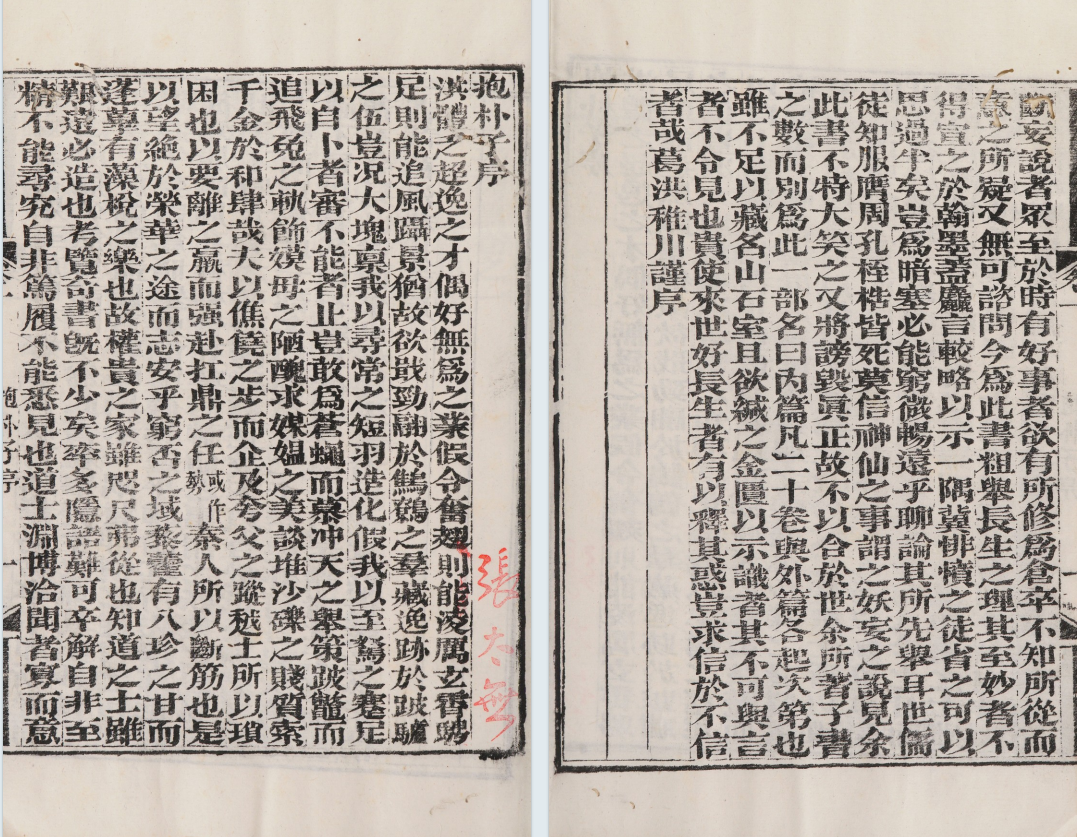 抱朴子序
洪體乏超逸之才偶好無爲之業假令奮翅則能凌厲玄霄騁
足則能追風躡景猶故欲戢勁翮於鷦鷃之羣藏逸跡於跛驢
之伍豈況大塊稟我以尋常之短羽造化假我以至駑之蹇足
以自卜者審不能者止豈敢爲蒼蠅而慕冲天之舉策跛鼈而
追飛兔之軌飾嫫母之陋醜求媒媼之美談堆沙礫之賤質索
千金於和肆哉夫以僬僥之步而企及夸父之蹤士所以瑣
困也以要離之羸而强赴扛鼎之任或作勢秦人所以斷筋也是
以望絕於榮華之途而志安乎窮否之域藜藿有八珍之甘而
蓬蓽有藻梲之樂也故權貴之家雖咫尺弗從也知道之士雖
艱遠必造也考覽奇書旣不少矣率多隱語難可卒解自非至
精不能尋究自非篤履不能悉見也道士淵博洽聞者寡而意
張太無
斷妄說者眾至於時有好事者欲有所修爲倉卒不知所從而
意之所疑又無可諮問今爲此書粗舉長生之理其至妙者不
得宣之於翰墨蓋麤言較略以示一隅冀悱憤之徒省之可以
思過半矣豈爲暗塞必能窮微暢遠乎聊論其所先舉耳世儒
徒知服膺周孔桎梏皆死莫信神仙之事謂之妖妄之說見余
此書不特大笑之又將謗毀眞正故不以合於世余所著子書
之數而別爲此一部名曰內篇凡二十卷與外篇各起次第也
雖不足以藏名山石室且欲緘之金匱以示識者其不可與言
者不令見也貴使來世好長生者有以釋其惑豈求信於不信
者哉葛洪稚川謹序